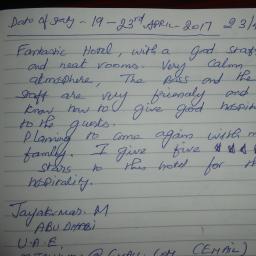 Date of stay - 19 - 23rd APRIL - 2017 23/
Fantastic Hotel, with a good staff
and neat rooms. Very calm
atmosphere, The Boss and the
staff are very friendly and
know how to give good hospit
to the guests.
Planning to come again with m
family. I give five
stars to this hotel for th
hospitality.
Jayakumar. M
ABU DHABI
U.A.E.
(EMAIL)